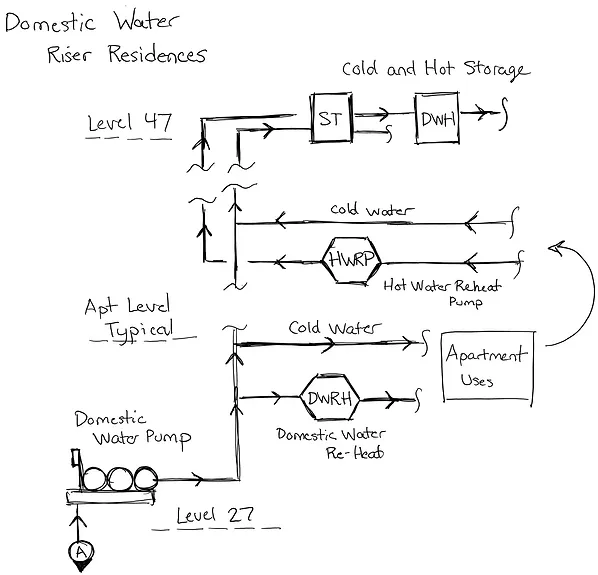 Domestic Water
Riser Residences
Cold and Hot Storage
Level 47
ST
DWH
Cold Water
HWRP
Hot Water Reheat
Pump
Apt Level
Typical
Cold Water
Apartment
Uses
DWRH
Domestic Water
Re-Heat
Domestic
Water Pump
Level 27
A